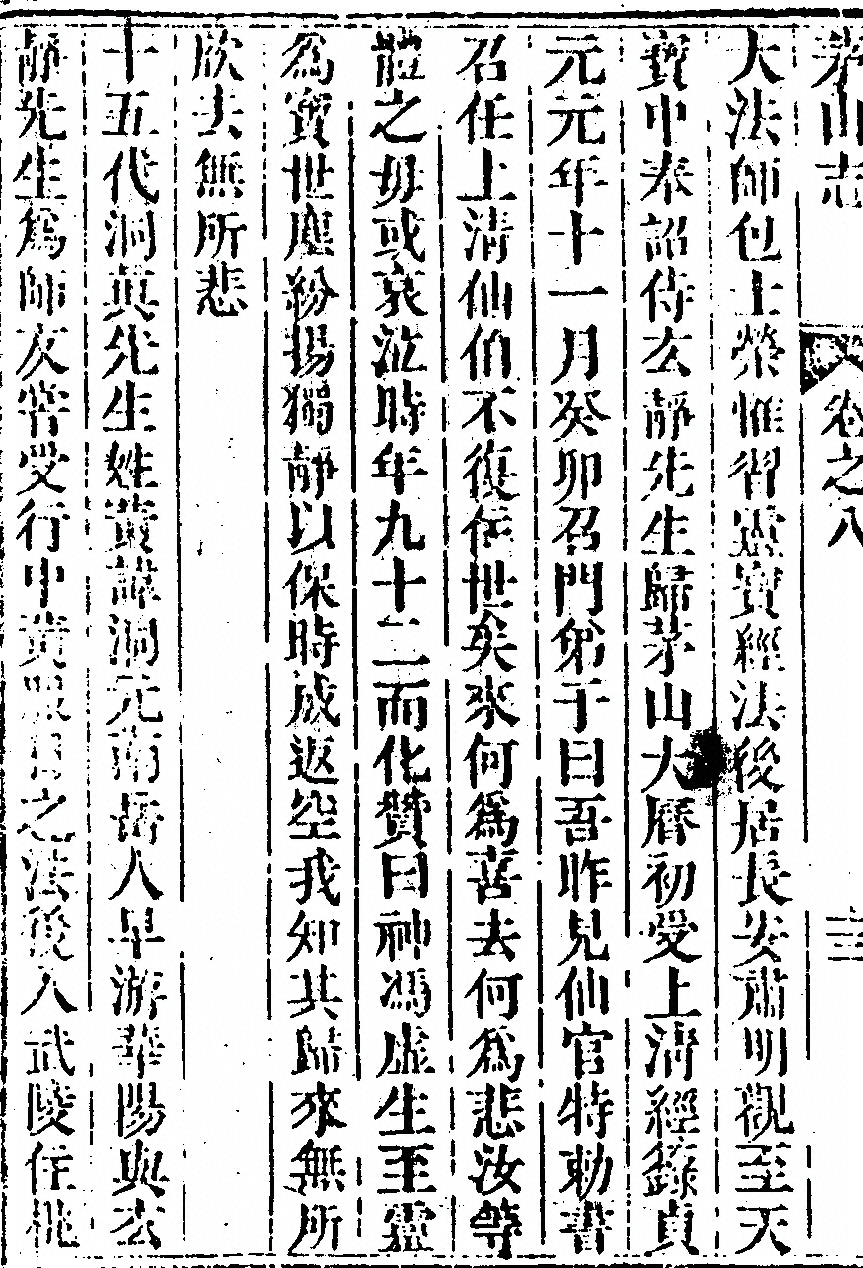 茅山志 卷之八
大法師包士榮惟習靈寶經法後居長安肅明觀至天
寶中奉詔侍玄靜先生歸茅山大曆初受上清經籙貞
元元年十一月癸卯召門弟子曰吾昨見仙官特勑書
召任上清仙伯不復住世矣來何爲喜去何爲悲汝等
體之毋或哀泣時年九十二而化贊曰神馮虛生至靈
為寶世塵紛揚獨靜以保時成返空我知其歸來無所
欣去無所悲
十五代洞真先生姓黃諱洞元南岳人早游華陽與玄
靜先生爲師友嘗受行中黃服日之法後入武陵住桃